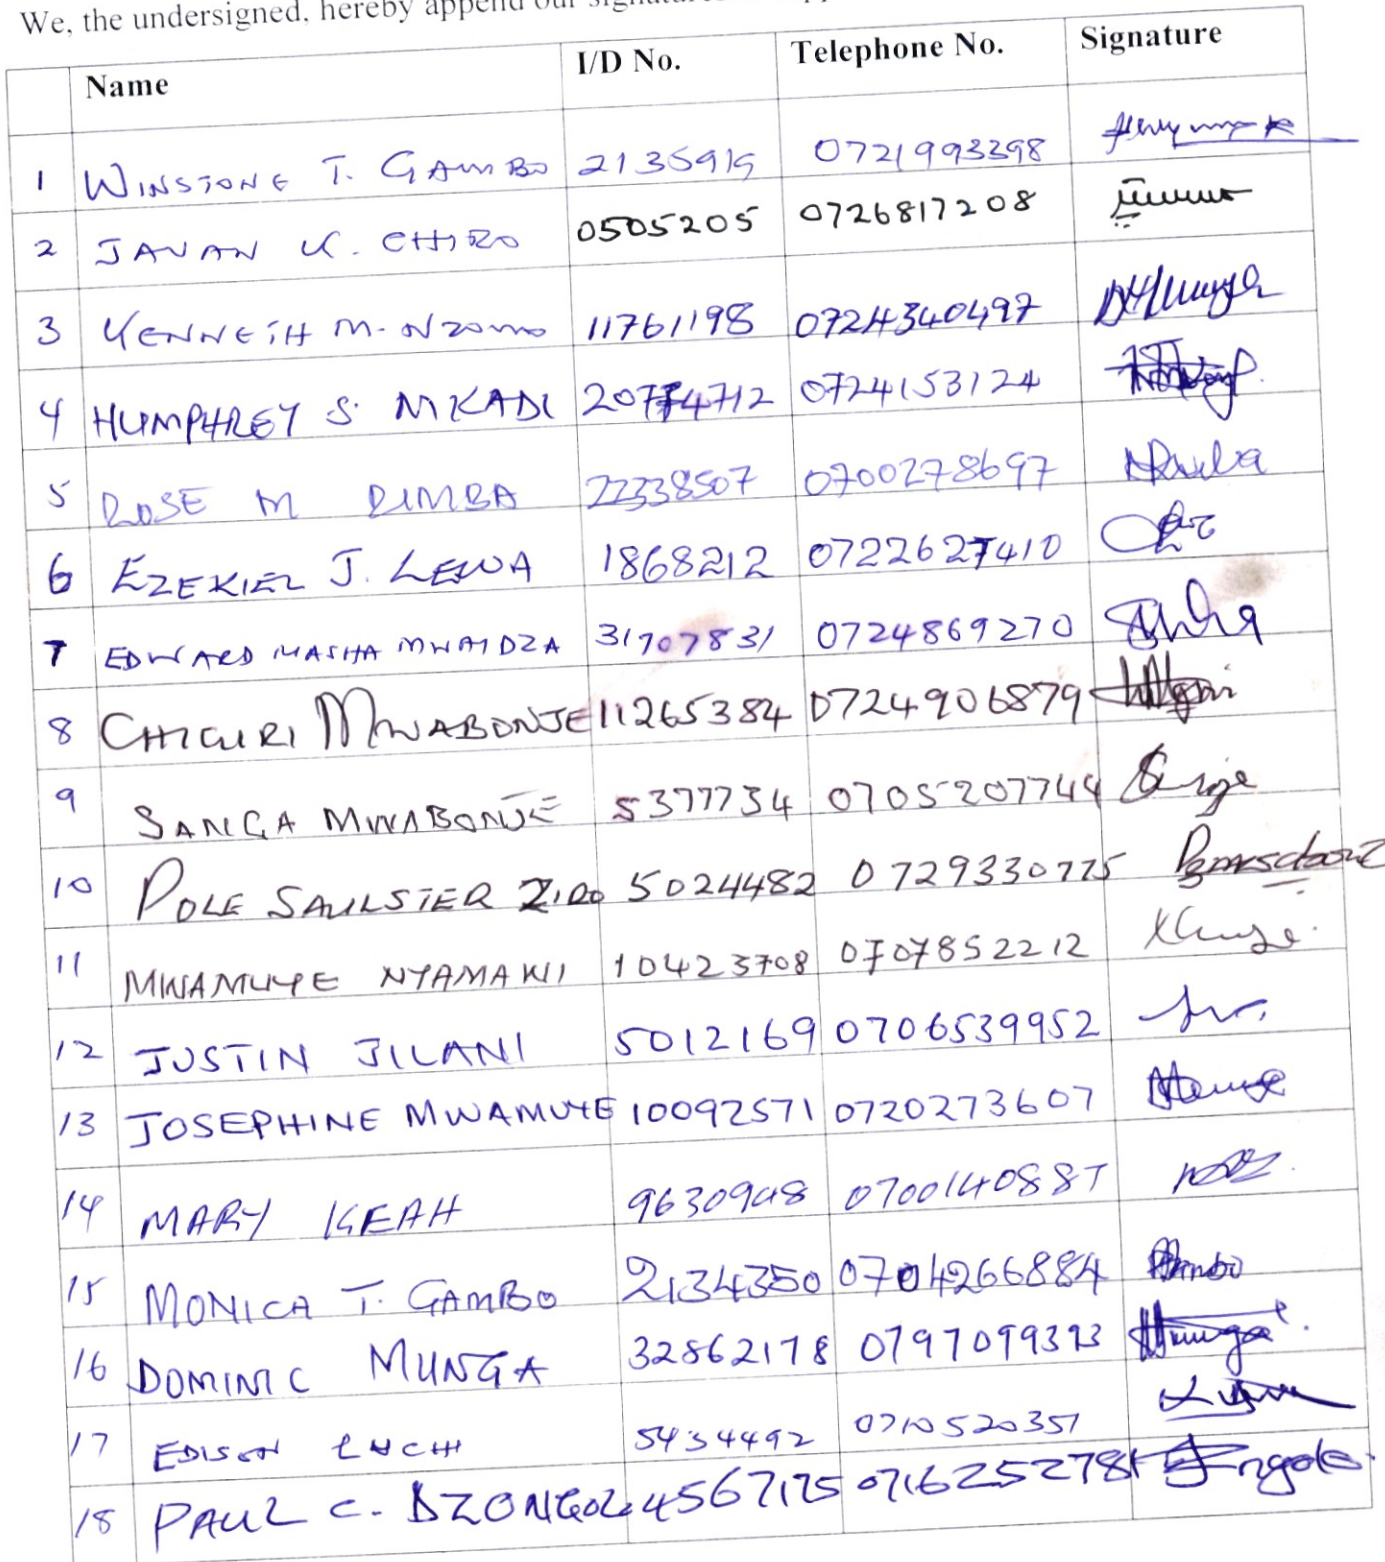 We, the undersigned, hereby append our
Name I/D No. Telephone No. Signature
1 WINSTONE T. GAMBO 2135919 0721993398
2 JAVAN K. CHIRO 0505205 0726817208
3 KENNETH M. NZOMO 11761198 0724340497
4 HUMPHREY S. MKADI 20774712 0724153124
5 ROSE M RIMBA 22338507 0700278697
6 EZEKIEL J. LEWA 1868212 0722627410
7 EDWARD MASHA MWAIDZA 31707831 0724869270
8 CHIGIRI MWABONJE 11265384 0724906879
9 SANGA MWABONJE 5377734 0705207744
10 POLE SAULSTER ZIRO 5024482 0729330775
11 MWAMUYE NYAMAWI 10423708 0707852212
12 JUSTIN JILANI 5012169 0706539952
13 JOSEPHINE MWAMUYE 10092571 0720273607
14 MARY KEAH 9630948 0700140887
15 MONICA T. GAMBO 2134350 0704266884
16 DOMINIC MUNGA 32862178 0797099393
17 EDISON 5434492 0710520351
18 PAUL C. DZONGOLO 4567175 0716252781